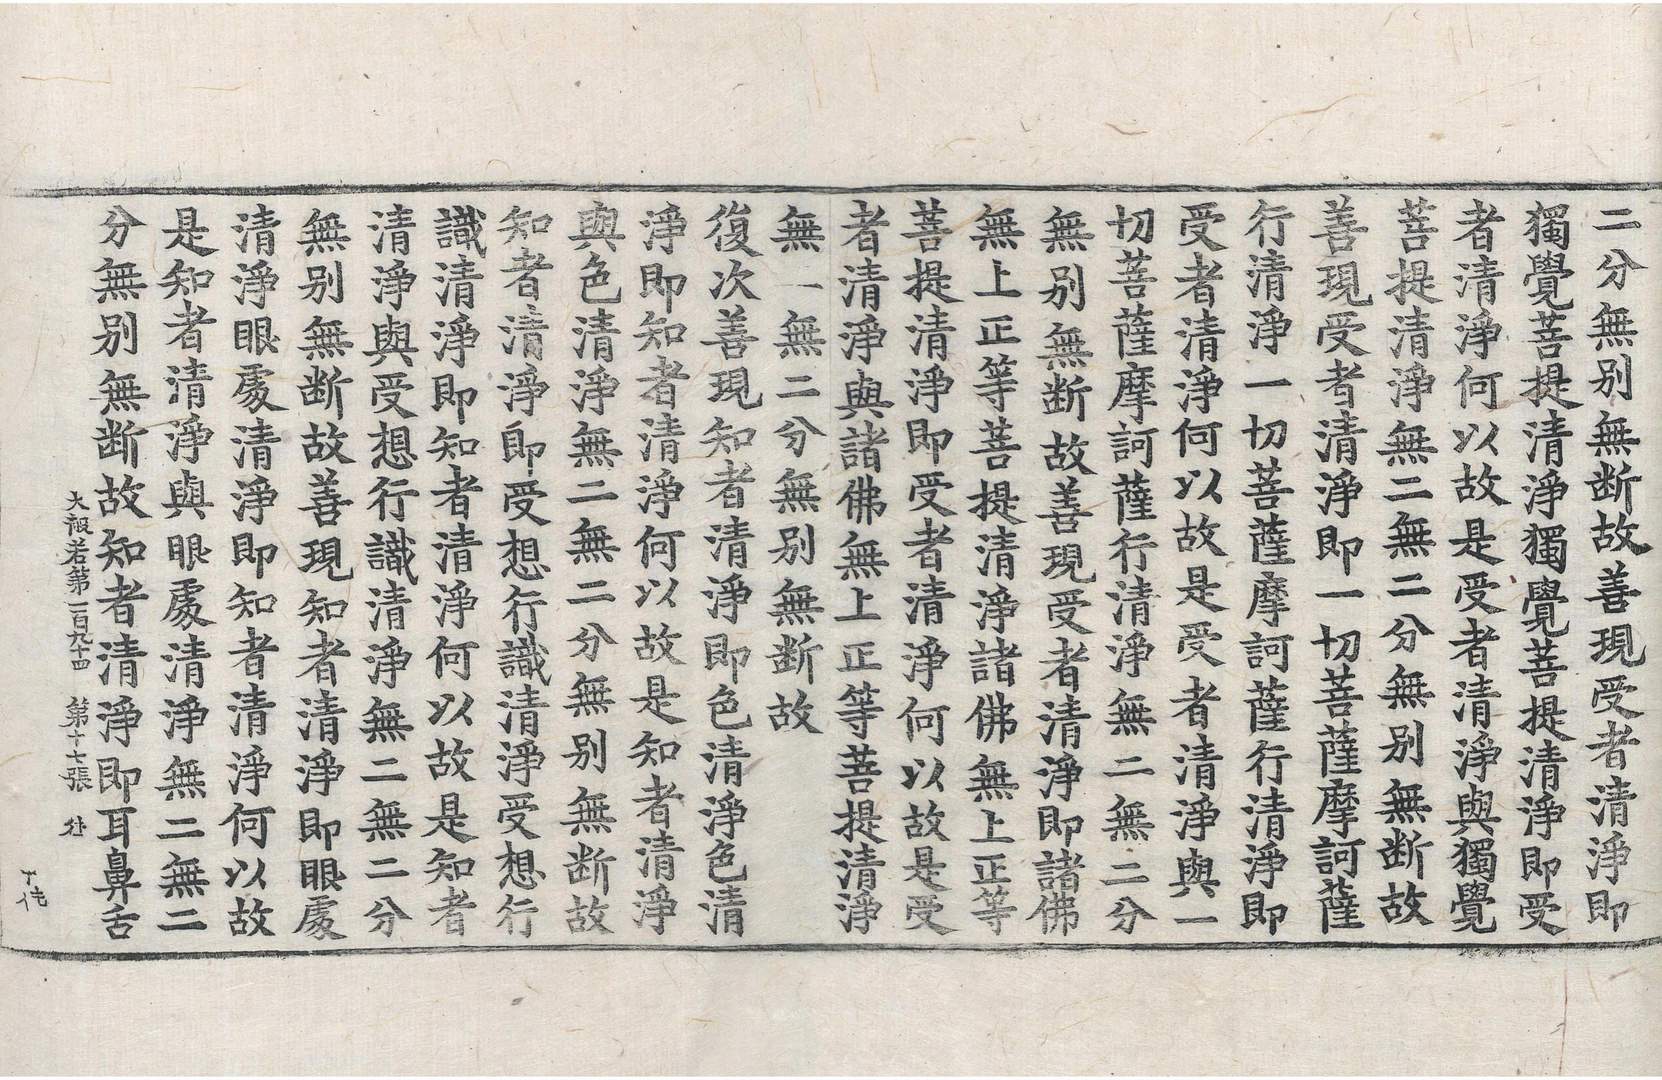 二分無別無断故善現受者清淨即
獨覺菩提清淨獨覺菩提清淨即受
者清淨何以故是受者清淨與獨覺
菩提清淨無二無二分無別無断故
善現受者清淨即一切菩薩摩訶薩
行清淨一切菩薩摩訶薩行清淨即
受者清淨何以故是受者清淨與一
切菩薩摩訶薩行清淨無二無二分
無別無断故善現受者清淨即諸佛
無上正等菩提清淨諸佛無上正等
菩提清淨即受者清淨何以故是受
者清淨與諸佛無上正等菩提清淨
無二無二分無別無断故
復次善現知者清淨即色清淨色清
淨即知者清淨何以故是知者清淨
與色清淨無二無二分無別無断故
知者清淨即受想行識清淨受想行
識清淨即知者清淨何以故是知者
清淨與受想行識清淨無二無二分
無別無断故善現知者清淨即眼處
清淨眼處清淨即知者清淨何以故
是知者清淨與眼處清淨無二無二
分無別無断故知者清淨即耳鼻舌
大般若第一百九十四 第十七張